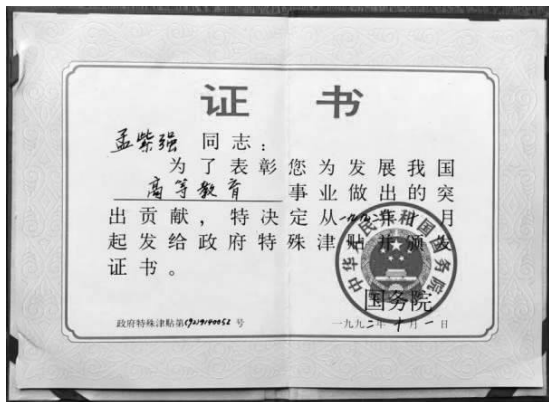 证书
孟紫强 同志：
为了表彰您为发展我国
高等教育 事业做出的突
出贡献，特决定从一九九二年十月
起发给政府特殊津贴并颁发
证书。
中华人民共和国国务院
国务院
政府特殊津贴第(92)9140052号
一九九二年十月一日